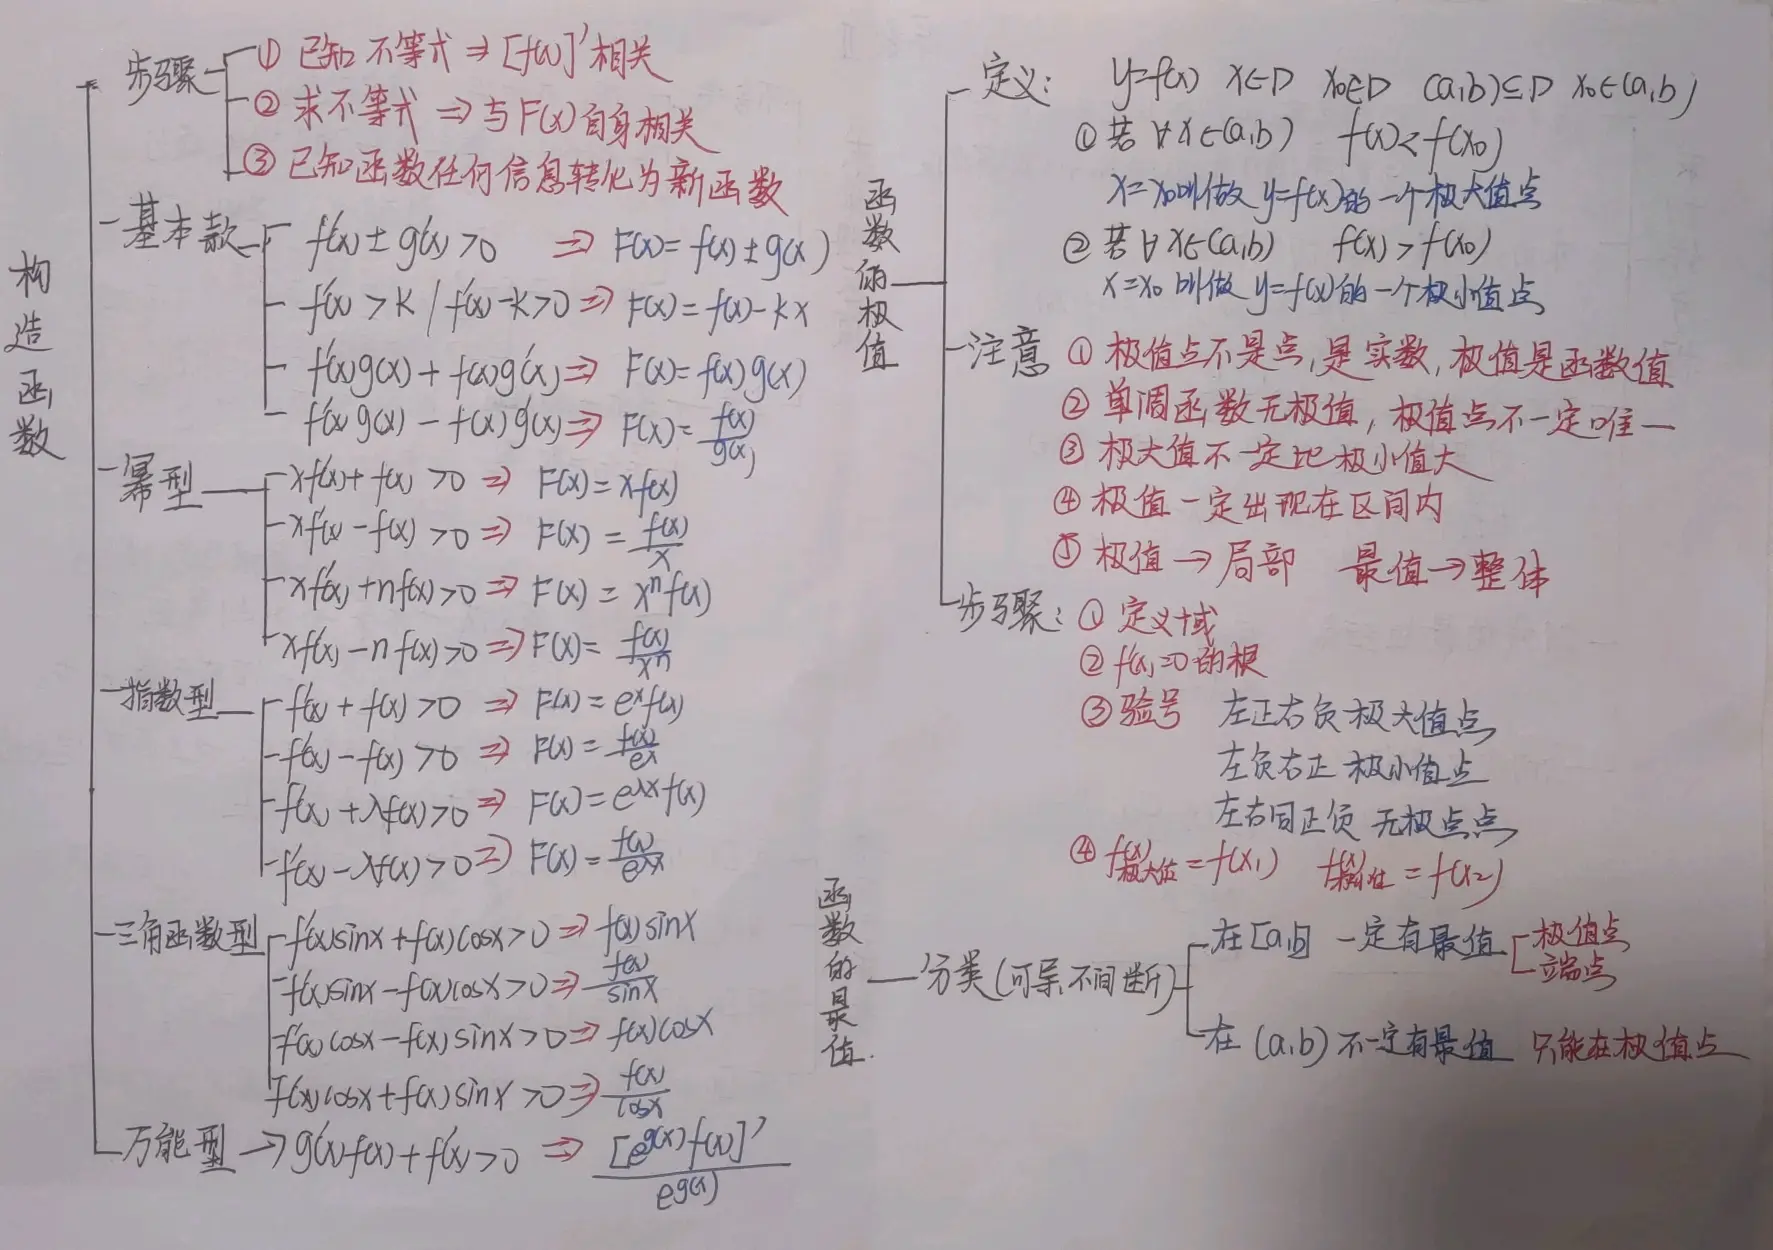 构造函数
步骤
① 已知不等式 ⇒ [f(x)]' 相关
② 求不等式 ⇒ 与F(x)自身相关
③ 已知函数任何信息转化为新函数
基本款
f'(x) ± g'(x) > 0 ⇒ F(x) = f(x) ± g(x)
f'(x) > k / f'(x) - k > 0 ⇒ F(x) = f(x) - kx
f'(x)g(x) + f(x)g'(x) ⇒ F(x) = f(x)g(x)
f'(x)g(x) - f(x)g'(x) ⇒ F(x) = f(x)/g(x)
幂型
xf'(x) + f(x) > 0 ⇒ F(x) = xf(x)
xf'(x) - f(x) > 0 ⇒ F(x) = f(x)/x
xf'(x) + nf(x) > 0 ⇒ F(x) = xⁿf(x)
xf'(x) - nf(x) > 0 ⇒ F(x) = f(x)/xⁿ
指数型
f'(x) + f(x) > 0 ⇒ F(x) = eˣf(x)
f'(x) - f(x) > 0 ⇒ F(x) = f(x)/eˣ
f'(x) + λf(x) > 0 ⇒ F(x) = e^λx f(x)
f'(x) - λf(x) > 0 ⇒ F(x) = f(x)/e^λx
三角函数型
f'(x)sinx + f(x)cosx > 0 ⇒ f(x)sinx
f'(x)sinx - f(x)cosx > 0 ⇒ f(x)/sinx
f'(x)cosx - f(x)sinx > 0 ⇒ f(x)cosx
f'(x)cosx + f(x)sinx > 0 ⇒ f(x)/cosx
万能型 → g'(x)f(x) + f'(x) > 0 ⇒ [e^g(x) f(x)]'/e^g(x)
函数的极值
定义: y=f(x) x∈D x₀∈D (a,b)⊆D x₀∈(a,b)
① 若∀x∈(a,b) f(x)<f(x₀)
x=x₀叫做y=f(x)的一个极大值点
② 若∀x∈(a,b) f(x)>f(x₀)
x=x₀叫做y=f(x)的一个极小值点
注意 ① 极值点不是点,是实数,极值是函数值
② 单调函数无极值,极值点不一定唯一
③ 极大值不一定比极小值大
④ 极值一定出现在区间内
⑤ 极值→局部 最值→整体
步骤: ① 定义域
② f'(x)=0的根
③ 验号 左正右负极大值点
左负右正 极小值点
左右同正负 无极点点
④ f(x)极大值 = f(x₁) f(x)极小值 = f(x₂)
函数的最值.
分类(可导,不间断)
在[a,b] 一定有最值
极值点
端点
在(a,b)不一定有最值 只能在极值点